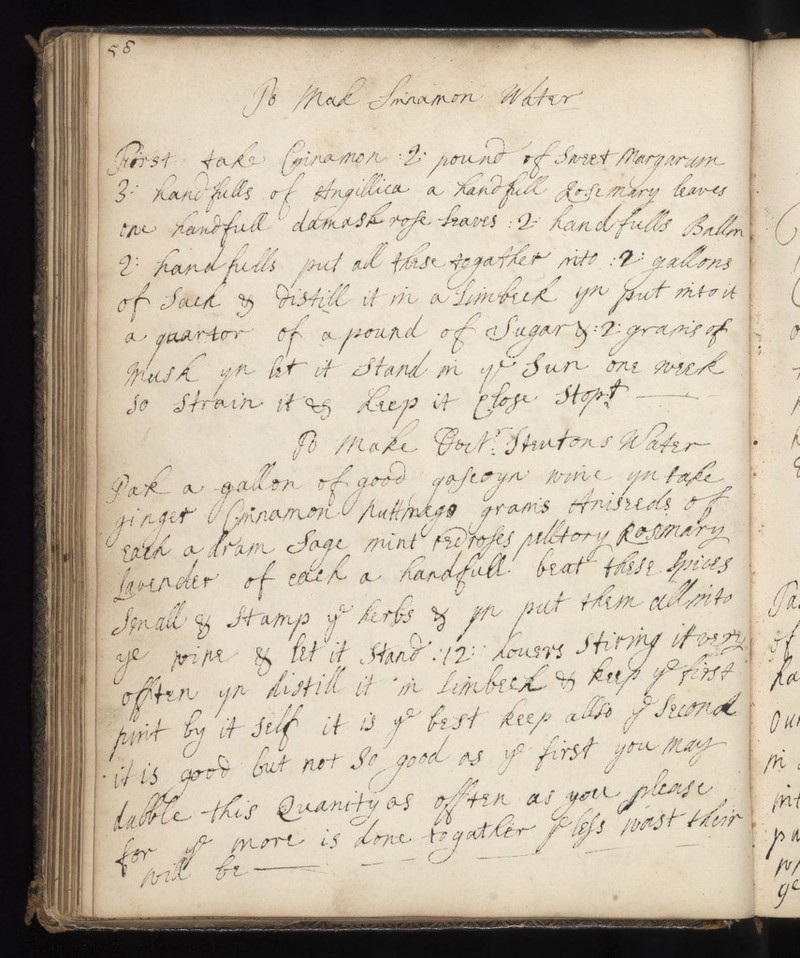 58
To Mak Sinnamon Water
First take Cinamon :2: pound of Sweet Margarum
3: handfulls of Angillica a handfull Rosemary leaves
one handfull damask rose leaves :2: handfulls Ballm
2: handfulls put all these togather into :2: gallons
of Sack & distill it in a Limbeck yn put into it
a quartor of a pound of Sugar & :2: grains of
Musk yn let it Stand in ye Sun one week
So Strain it & keep it Close Stopt
To Make Doctr: Steutons Water
Tak a gallon of good gascoyn wine yn take
ginger Cinnamon Nuttmegs grains Aniseeds of
each a dram Sage mint redroses pelltory Rosmary
Lavender of each a handfull beat these Spices
Small & Stamp ye herbs & yn put them all into
ye wine & let it Stand :12: howers Stiring it very
offten yn distill it in Limbeck & keep ye first
pint by it Self it is ye best keep allso ye Second
it is good but not So good as ye first you may
dubble this Quanity as offten as you please
for ye more is done togather ye less wast their
will be